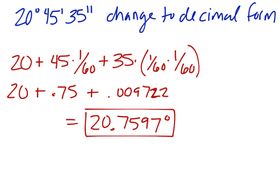 20° 45' 35" change to decimal form
20 + 45 · 1/60 + 35 · (1/60 · 1/60)
20 + .75 + .009722
= 20.7597°